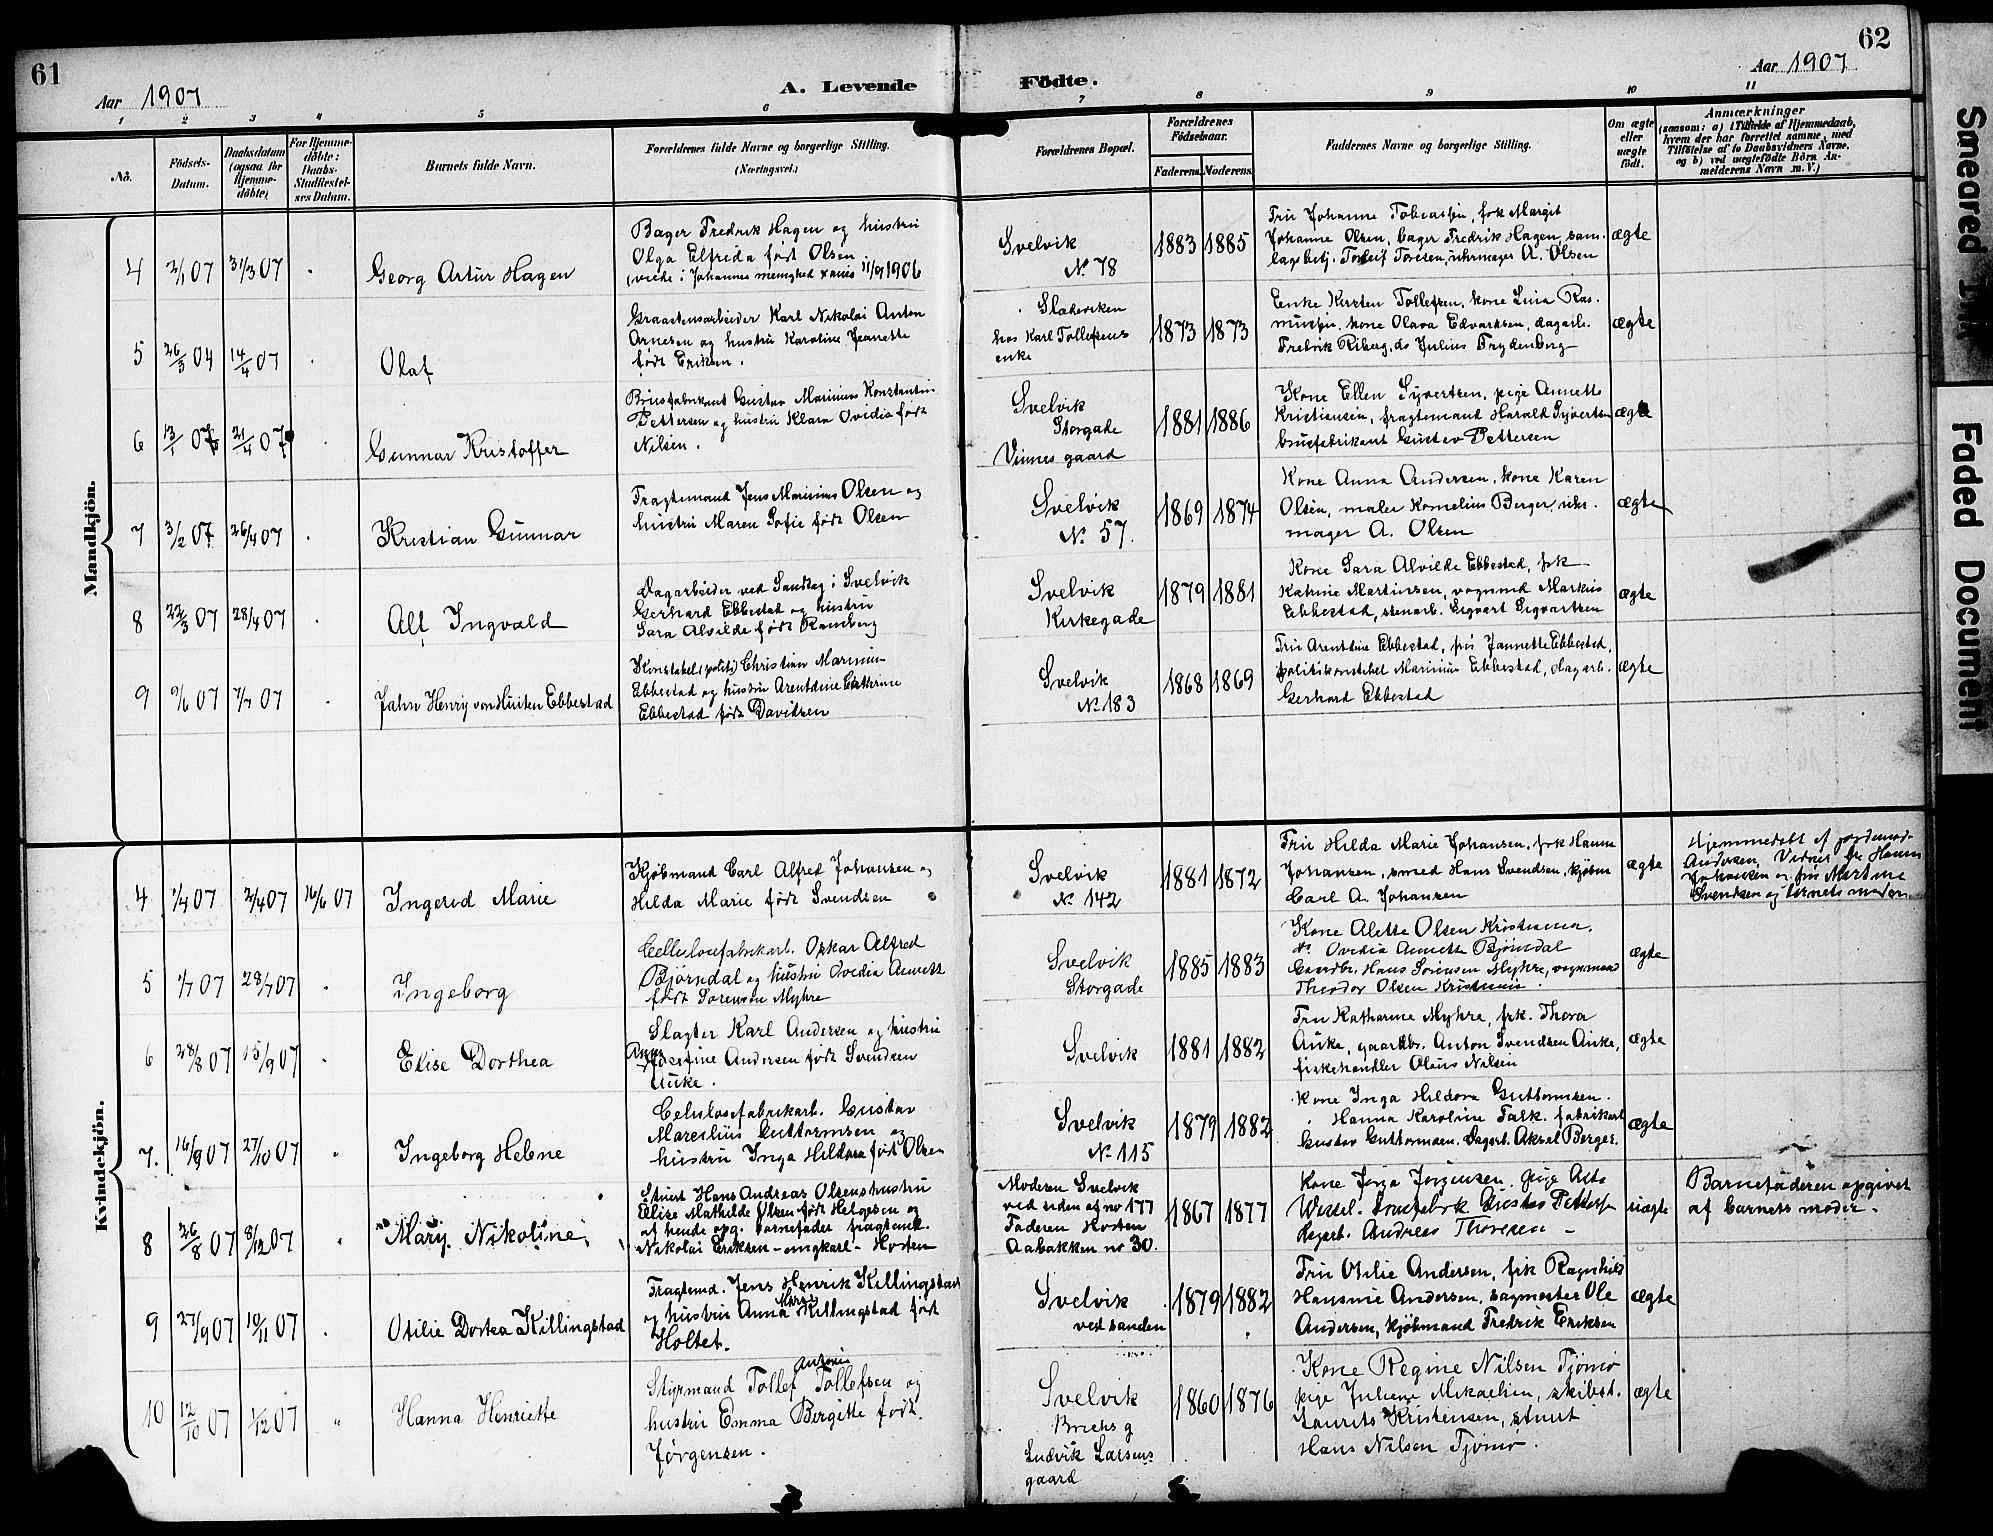 61
Aar 1907
A. Levende
Födte.
62
Aar 1907
1 2 3 4 5 6 7 8 9 10 11
No.
Födsels-
Datum.
Daabsdatum
(ogsaa for
Hjemme-
döbte)
For Hjemme-
döbte:
Daabs-
Stadfæstel-
ses Datum.
Barnets fulde Navn.
Forældrenes fulde Navne og borgerlige Stilling.
(Næringsvei.)
Forældrenes Bopæl.
Forældrenes
Födselsaar.
Faderens.
Moderens.
Faddernes Navne og borgerlige Stilling.
Om ægte
eller
uægte
født.
Anmærkninger
(saasom: a) i Tilfælde af Hjemmedaab,
hvem der har forrettet samme, med
Tilföielse af to Daabsvidners Navne,
og b) ved uægtefödte Börn An-
melderens Navn m. V.)
Mandkjön.
4 2/1 07 31/3 07
Georg Artur Hagen
Bager Fredrik Hagen og hustru
Olga Elfrida født Olsen
(viede i Johannes menighed 11/9 1906
Svelvik
No 78
1883 1885
Fru Johanne Tobiassen, frk Margit
Johanne Olsen, bager Fredrik Hagen, sam-
lagsbestj. Toresen, uhrmager A. Olsen
ægte
5 26/3 04 14/4 07
Olaf
Graastensarbeider Karl Nikolai Anton
Arnesen og hustru Karoline Jeanette
født Eriksen.
hos Karl Tollefsens
enke
1873 1873
Enke Kirsten Tollefsen, kone Lina Ras-
mussen, kone Olava Edvardsen, dagarb.
Fredrik Riberg, do Julius Frydenberg
ægte
6 13/1 07 21/4 07
Gunnar Kristoffer
Brusfabrikant Gustav Marinius Konstantin
Pettersen og hustru Klara Ovidia født
Nilsen.
Svelvik
Storgade
Vinnes gaard
1881 1886
Kone Ellen Syvertsen, pige Annette
Kristiansen, fragtemand Harald Syvertsen
brusfabrikant Gustav Pettersen
ægte
7 3/2 07 26/4 07
Kristian Gunnar
Fragtemand Jens Marinius Olsen og
hustru Maren Sofie født Olsen
Svelvik
No. 57.
1869 1874
Kone Anna Andersen, kone Karen
Olsen, maler Kornelius Berger, uhr-
mager A. Olsen
ægte
8 22/3 07 28/4 07
Alf Ingvald
Dagarbeider ved Sandtag i Svelvik
Gerhard Ebbestad og hustru
Sara Alvilde født Ramberg
Svelvik
Kirkegade
1879 1881
Kone Sara Alvilde Ebbestad, frk
Katrine Martinsen, vognmd Markus
Ebbestad, stenarb. Sigvart Sigvartsen
ægte
9 9/6 07 7/7 07
Jahn Henry von Huiten Ebbestad
Konstabel (politi) Christian Marinius
Ebbestad og hustru Arentdine Cathrine
Ebbestad født Davidsen
Svelvik
No 183
1868 1869
Fru Arentdine Ebbestad, fru Jannette Ebbestad,
politikonstabel Marinius Ebbestad, dagarb.
Gerhard Ebbestad
ægte
Kvindekjön.
4 1/4 07 2/4 07 16/6 07
Ingerid Marie
Kjøbmand Carl Alfred Johansen og
Hilda Marie født Svendsen
Svelvik
No. 142
1881 1872
Fru Hilda Marie Johansen, frk Hanna
Johansen, smed Hans Svendsen, kjøbm
Carl A. Johansen
ægte
Hjemmedøbt af jordemod.
Andersen, Vidner frk Hanna
Johansen og fru Martine
Svendsen og barnets moder
5 1/7 07 28/7 07
Ingeborg
Cellulosefabrikarb. Oskar Alfred
Bjørndal og hustru Ovidia Annette
født Sørensen Myhre
Svelvik
Storgade
1885 1883
Kone Alette Olsen Kristiania,
do Ovidia Annette Bjørndal
Gaardbr. Hans Sørensen Myhre, vognmand
Theodor Olsen Kristiania.
ægte
6 28/8 07 15/9 07
Elise Dorthea
Slagter Karl Andersen og hustru
Anna Josefine Andersen født Svendsen
Auke.
Svelvik
1881 1882
Fru Katharine Myhre, frk. Thora
Auke, gaardbr. Anton Svendsen Auke,
fiskehandler Olaus Nilsen
ægte
7. 16/9 07 27/10 07
Ingeborg Helene
Celulosefabrikarb. Gustav
Marcelius Guttormsen og
hustru Inga Hildora født Olsen
Svelvik
No 115
1879 1882
Kone Inga Hildora Guttormsen.
Hanna Karoline Falk. fabrikarb
Gustav Guttormsen. Dagarb. Aksel Berger.
ægte
8 26/8 07 8/12 07
Mary Nikoline
Stuert Hans Andreas Olsens hustru
Elise Mathilde Olsen født Helgesen og
af hende opg. barnefader fragtemd.
Nikolai Eriksen - ungkarl - Horten
Moderen Svelvik
ved siden af no 177
Faderen Horten
Aabakken no 30.
1867 1877
Kone Jørga Jørgensen. Pige Asta
Wessel. Brusfabrik Gustav Petters
dagarb. Andreas Thoresen -
uægte
Barnefaderen opgivet
af barnets moder.
9 27/9 07 10/11 07
Otilie Dortea Killingstad
Fragtemd. Jens Henrik Killingstad
og hustru Anna Marie Killingstad født
Holtet.
Svelvik
ved sanden
1879 1882
Fru Otilie Andersen, frk Ragnhild
Hansine Andersen, sagmester Ole
Andersen, kjøbmand Fredrik Eriksen
ægte
10 12/10 07 1/12 07
Hanna Henriette
Styrmand Tollef Antoni Tollefsen og
hustru Emma Bergitte født
Jørgensen.
Svelvik
Ludvik Larsens
gaard
1860 1876
Kone Regine Nilsen Tjømø
pige Juliane Mikaelsen, skibst.
Laurits Kristensen, stuert
Hans Nilsen Tjømø.
ægte
Smeared Ink
Faded Document